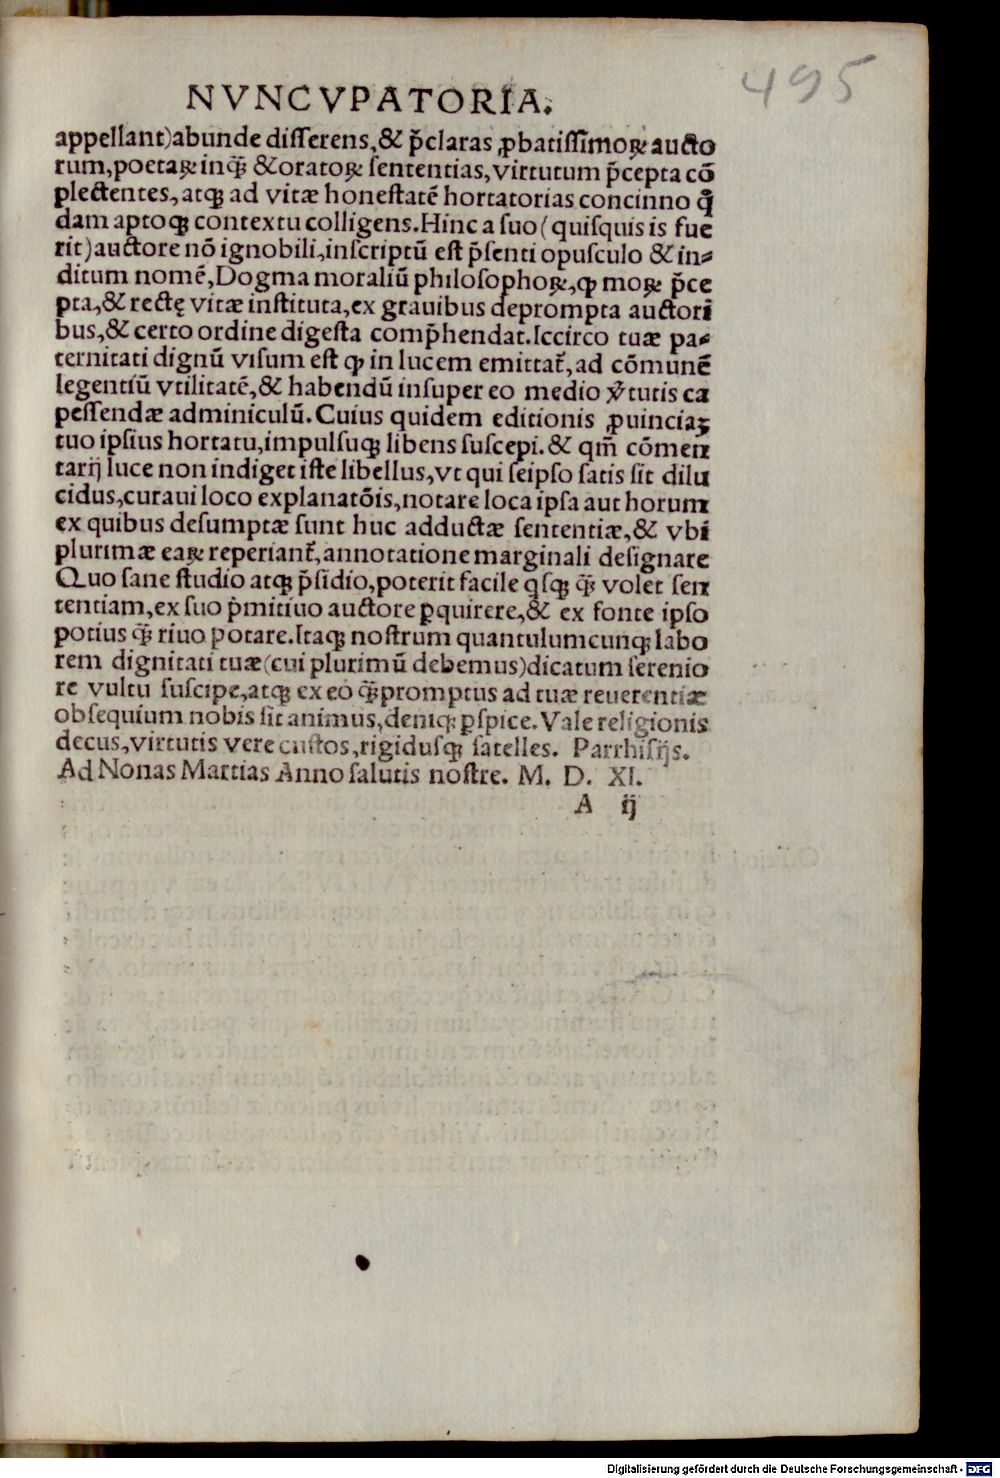 495
NVNCVPATORIA.
appellant)abunde disserens,& p̃claras ꝓbatissimoꝝ aucto
rum,poetaꝝ inq̃ &oratoꝝ sententias,virtutum p̃cepta cō
plectentes,atqꝫ ad vitæ honestatē hortatorias concinno q̃
dam aptoqꝫ contextu colligens.Hinc a suo(quisquis is fue
rit)auctore nō ignobili,inscriptū est p̃senti opusculo & in-
ditum nomē,Dogma moraliū philosophoꝝ,ꝙ moꝝ p̃ce
pta,& rectę vitæ instituta,ex grauibus deprompta auctori
bus,& certo ordine digesta comp̃hendat.Iccirco tuæ pa-
ternitati dignū visum est ꝙ in lucem emittat̃,ad cōmunē
legentiū vtilitatē,& habendū insuper eo medio ṽtutis ca
pessendæ adminiculū.Cuius quidem editionis ꝓuinciaꝫ
tuo ipsius hortatu,impulsuqꝫ libens suscepi.& qm̄ cōmen
tarij luce non indiget iste libellus,vt qui seipso satis sit dilu
cidus,curaui loco explanatōis,notare loca ipsa aut horum
ex quibus desumptæ sunt huc adductæ sententiæ,& vbi
plurimæ eaꝝ reperiant̃,annotatione marginali designare
Quo sane studio atqꝫ p̃sidio,poterit facile qsqꝫ q̃ volet sen
tentiam,ex suo p̓mitiuo auctore ꝑquirere,& ex fonte ipso
potius q̃ riuo potare.Itaqꝫ nostrum quantulumcunqꝫ labo
rem dignitati tuæ(cui plurimū debemus)dicatum serenio
re vultu suscipe,atqꝫ ex eo q̃promptus ad tuæ reuerentiæ
obsequium nobis sit animus,deniqꝫ ꝑspice.Vale religionis
decus,virtutis vere custos,rigidusqꝫ satelles. Parrhisijs.
Ad Nonas Martias Anno salutis nostre. M. D. XI.
A ij
Digitalisierung gefördert durch die Deutsche Forschungsgemeinschaft - DFG